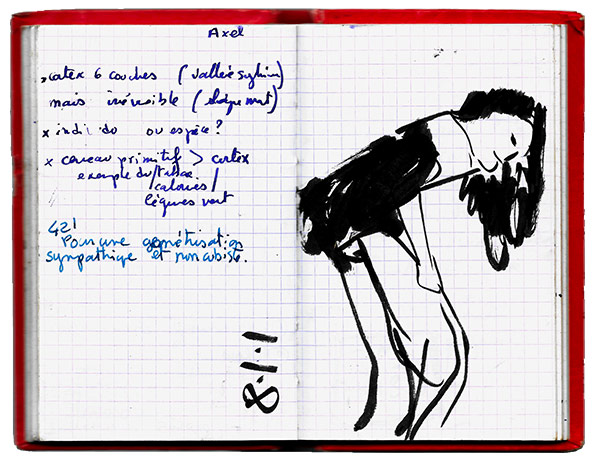 Axel
x cortex 6 couches (vallée sylvien)
mais
x ou espèce?
x cerveau primitif > cortex
exemple du tabac
/calories/
légumes vert
421
Pour une géométrisation
sympathique et non cubiste.
8.1.1